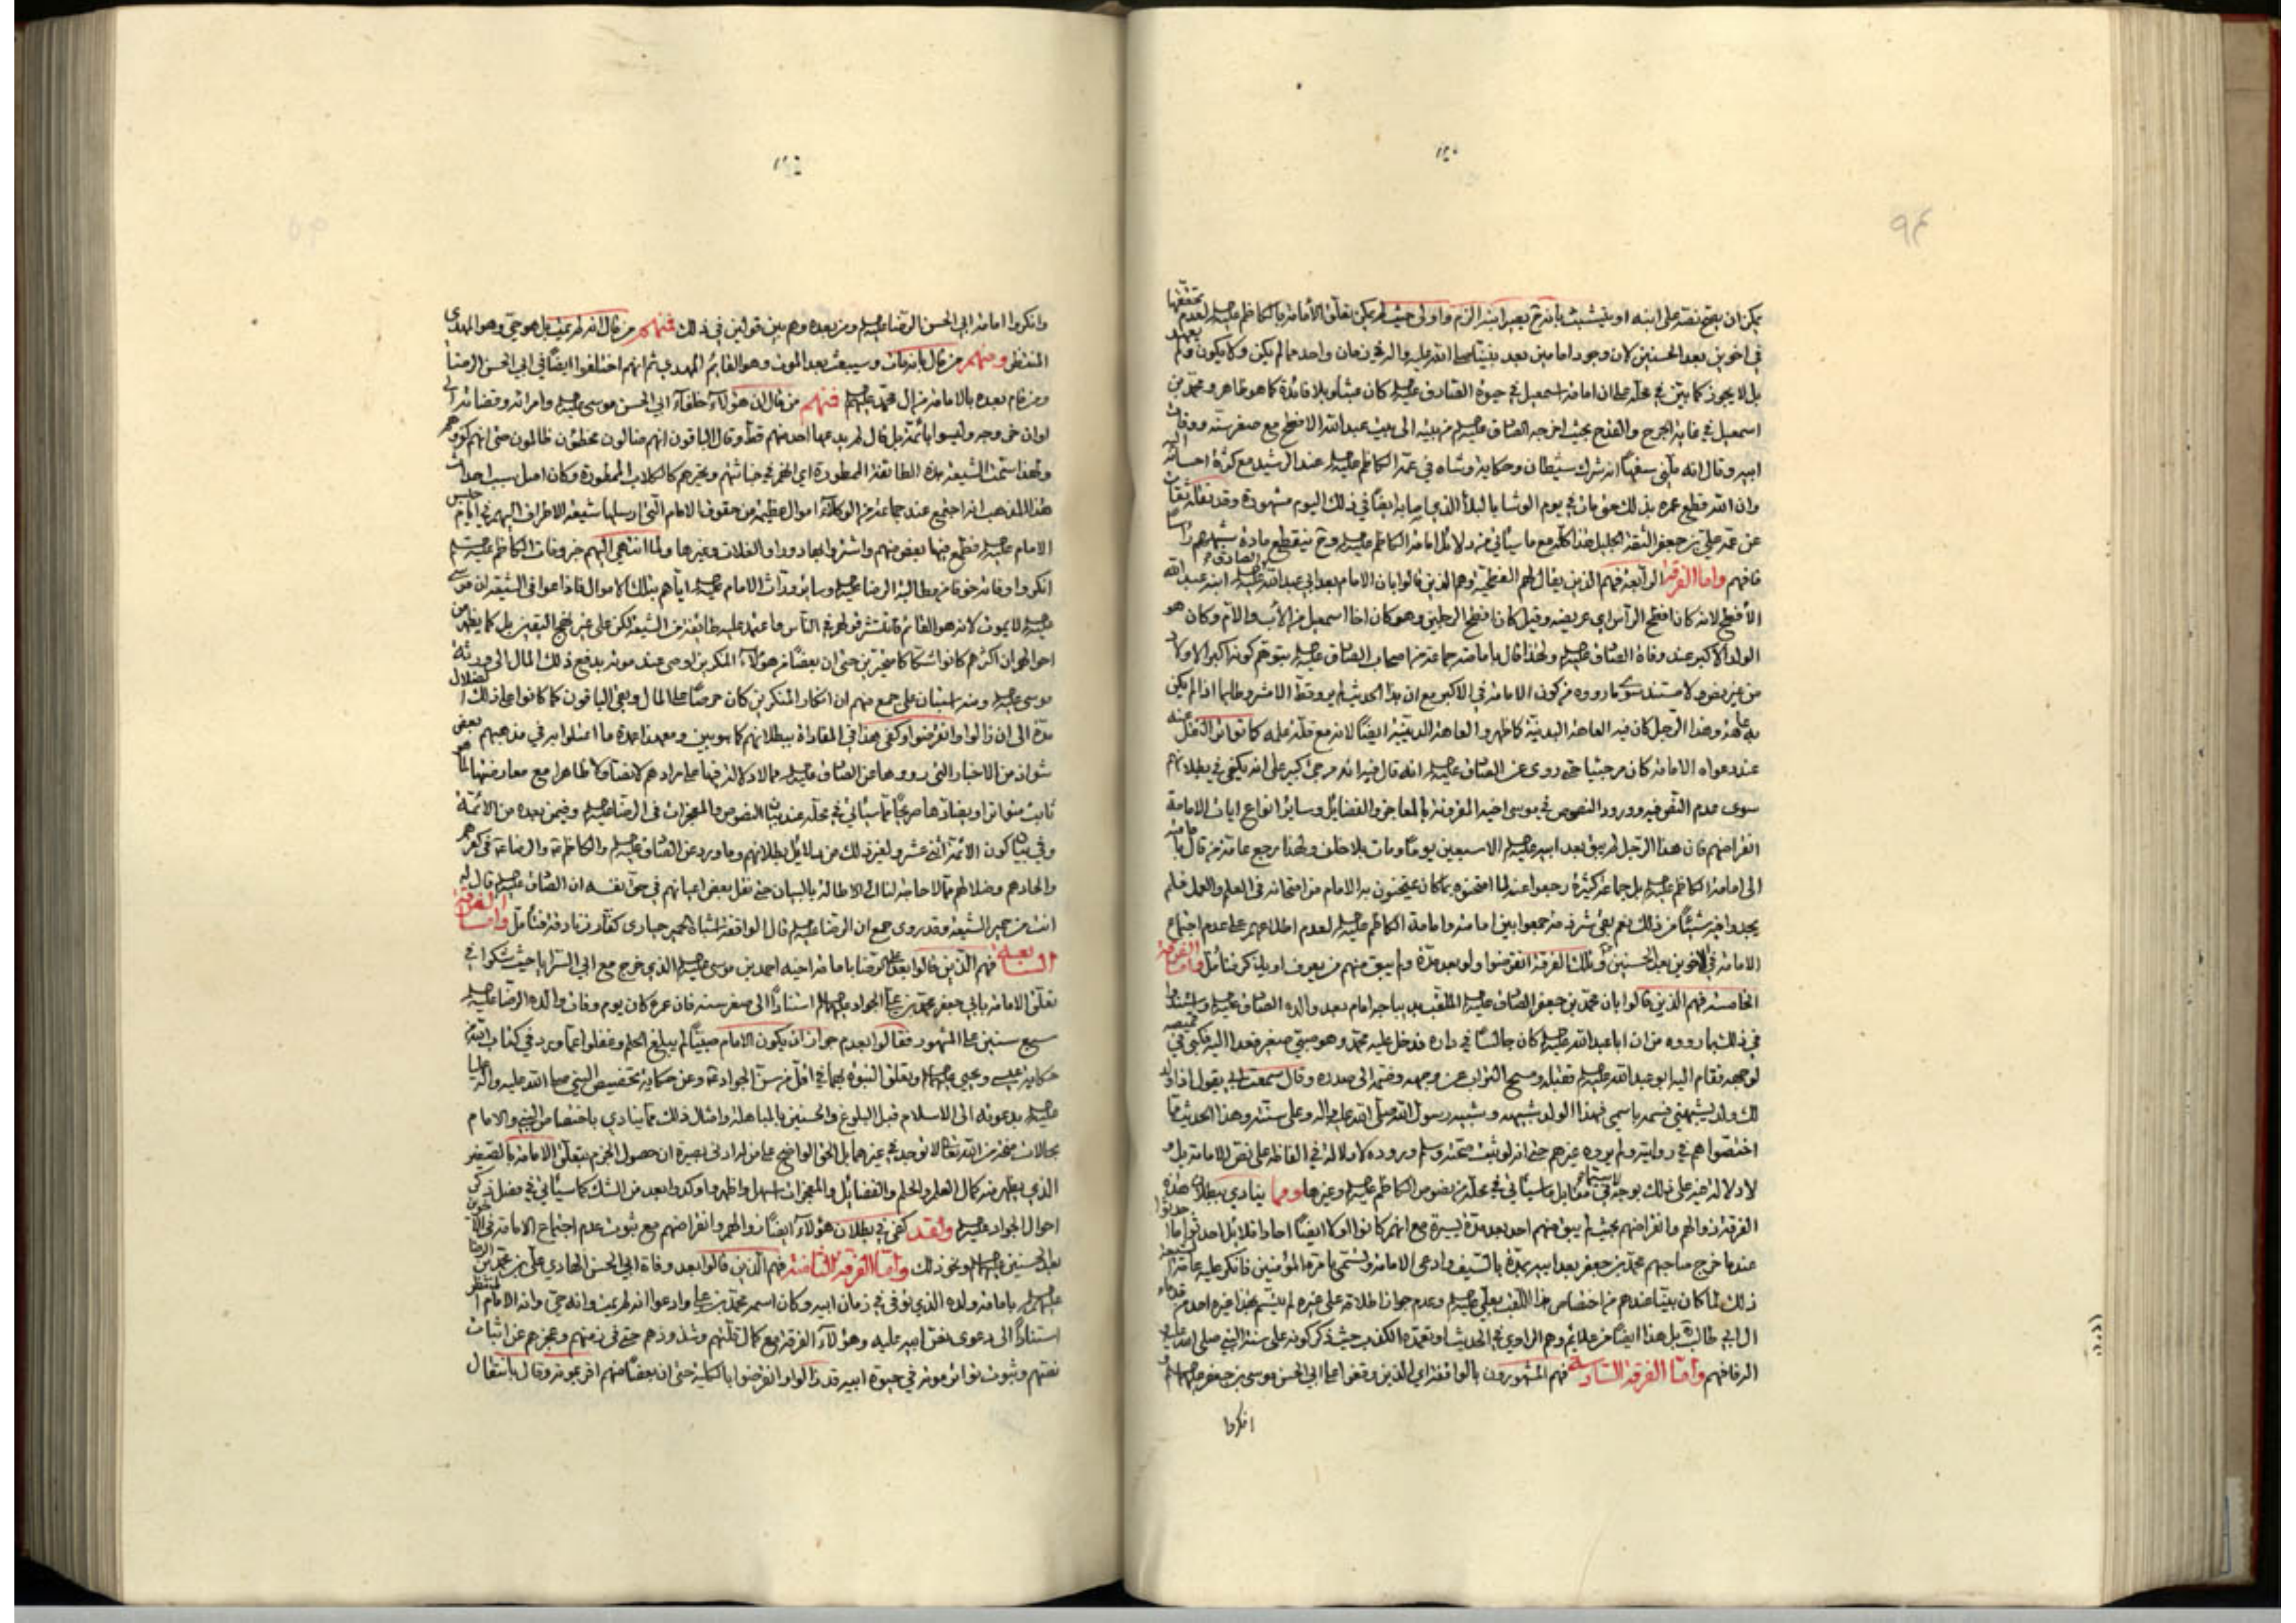 يمكن ان يصح نصه على ابنه او يتشبث بانه ح يصير ابنه الزم واولى حيث لم يكن تعلق الامامة بالكاظم عليه السلام لعدم تحققها
في اخوين بعد الحسنين لان وجود امامين بعد نبينا صلى الله عليه واله في زمان واحد مما لم يكن ولا يكون ولم يعهد
بل لا يجوز كما بين في محله على ان امامة اسمعيل في حيوة الصادق عليه السلام كان عبثا وبلا فائدة كما هو ظاهر ومحمد بن
اسمعيل في غاية الجرح والقدح بحيث اخرجه الصادق عليه السلام من بيته الى بيت عبد الله الافطح مع صغر سنه ووفات
ابيه وقال انه سفيها انه شرك شيطان وحكاية وشاه في عمه الكاظم عليه السلام عند الرشيد مع كثرة احسانه اليه
وان الله قطع عمره بذلك حتى مات في يوم الوشا بالبلاء الذي اصابه ايضا في ذلك اليوم مشهورة وقد نقله ثقات
عن عمه علي بن جعفر الثقة الجليل هذا كله مع ما سيأتي من دلائل امامة الكاظم عليه السلام وح ينقطع مادة شبهتهم راسا
فافهم واما الفرقة الرابعة فهم الذين يقال لهم الفطحية وهم الذين قالوا بان الامام بعد ابي عبد الله الصادق عليه السلام ابنه عبد الله
الأفطح لانه كان افطح الراس اي عريضه وقيل كان افطح الرجلين وهو كان اخا اسمعيل من الأب والأم وكان هو
الولد الاكبر عند وفاة الصادق عليه السلام ولهذا قال بامامته جماعة من اصحاب الصادق عليه السلام بتوهم كونه اكبر الاولاد
من غير نص ولا مستند سوى ما رووه من كون الامامة في الاكبر مع ان هذا الحديث لم يرو قط الا مشروطا بما اذا لم يكن
به عاهة وهذا الرجل كان فيه العاهة البدنية كما ظهر والعاهة الدينية ايضا لانه مع قلة علمه كما تواتر النقل عنه
عند دعواه الامامة كان مرجئيا حتى روى عن الصادق عليه السلام انه قال فيه انه مرجئ كبير على انه يكفي في بطلانهم
سوى عدم النص فيه وورود النصوص في موسى اخيه المقرونة بالمعاجز والفضائل وسائر انواع ايات الامامة
انقراضهم فان هذا الرجل لم يبق بعد ابيه عليه السلام الا سبعين يوما ومات بلا خلف ولهذا رجع عامة من قال بامامته
الى امامة الكاظم عليه السلام بل جماعة كثيرة رجعوا عنه لما امتحنوه بما كان يمتحنون به الامام من امتحانه في العلم والعمل فلم
يجدوا فيه شيئا من ذلك نعم بقي شرذمة جمعوا بين امامته وامامة الكاظم عليه السلام لعدم اطلاعهم على عدم اجتماع
الامامة في الاخوين بعد الحسنين وتلك الفرقة انقرضوا ولو بعد مدة ولم يبق منهم من يعرف او يذكر فتأمل واما الفرقة
الخامسة فهم الذين قالوا بان محمد بن جعفر الصادق عليه السلام الملقب بديباجه امام بعد والده الصادق عليه السلام واستندوا
في ذلك بما رووه من ان ابا عبد الله عليه السلام كان جالسا في داره فدخل عليه محمد وهو صبي صغير فعدا اليه فكبى في قميصه
لوجهه فقام اليه ابو عبد الله عليه السلام فقبله ومسح التراب عن وجهه وضمه الى صدره وقال سمعت ابي يقول اذا ولد
لك ولد يشبهني فسمه باسمي فهذا الولد شبيهه وشبيه رسول الله صلى الله عليه واله وعلى سنته وهذا الحديث مما
اختصوا هم في روايته ولم يروه غيرهم حتى انه لو ثبت صحته وسلم وروده لا دلالة في الفاظه على نص للامامة بل
لا دلالة فيه على ذلك بوجه لا سيما في مقابل ما سيأتي في محله من نصوص الكاظم عليه السلام وغيرها ومما ينادي ببطلان هذه
الفرقة زوالهم وانقراضهم بحيث لم يبق منهم احد بعد مدة يسيرة مع انهم كانوا اولا ايضا احادا قلائل احدثوا
عندما خرج صاحبهم محمد بن جعفر بعد ابيه بمدة بالسيف وادعى الامامة وتسمى بامرة المؤمنين فانكر عليه عامة الشيعة
ذلك لما كان بينا عندهم من اختصاص هذا اللقب بعلي عليه السلام وعدم جواز اطلاقه على غيره لم يتسم بهذا غيره احد من قدماء
ال ابي طالب بل هذا ايضا من علائم وهم الراوي في الحديث او تعمده الكذب حيث ذكر كونه على سنة النبي صلى الله عليه
واله فافهم واما الفرقة السادسة فهم المشهورون بالواقفة اي الذين وقفوا على ابي الحسن موسى بن جعفر عليهما السلام
وانكروا امامة ابي الحسن الرضا عليه السلام ومن بعده وهم بين قولين في ذلك فمنهم من قال انه لم يمت بل هو حي وهو المهدي
المنتظر ومنهم من قال بانه مات وسيبعث بعد الموت وهو القائم المهدي ثم انهم اختلفوا ايضا في ابي الحسن الرضا
ومن قام بعده بالامامة من ال محمد عليهم السلام فمنهم من قال ان هؤلاء خلفاء ابي الحسن موسى عليه السلام وامرائه وقضاته الى
اوان خروجه وليسوا بأئمة بل قال لم يدعها احد منهم قط وقال الباقون انهم ضالون مخطئون ظالمون حتى انهم كفروهم
ولهذا سمت الشيعة هذه الطائفة الممطورة اي انهم في خباثتهم وغيرهم كالكلاب الممطورة وكان اصل سبب احداث
هذا المذهب انه اجتمع عند جماعة من الوكلاء اموال عظيمة من حقوق الامام التي ارسلها شيعة الاطراف اليهم في ايام حبس
الامام عليه السلام فطمع فيها بعض منهم واشتروا بها دورا والغلات وغيرها ولما انتهى اليهم خبر وفات الكاظم عليه السلام
انكروا وفاته خوفا من مطالبة الرضا عليه السلام وسائر وراث الامام عليه السلام اياهم بتلك الاموال فاذاعوا في الشيعة ان موسى
عليه السلام لا يموت لانه هو القائم فانتشر قولهم في الناس واعتمد عليه طائفة من الشيعة لكن على غير نهج اليقين بل كما يظهر من
احوالهم ان اكثرهم كانوا شكاكا متحيرين حتى ان بعضا من هؤلاء المنكرين اوصى عند موته بدفع ذلك المال الى ورثة
موسى عليه السلام ومنه استبان على جمع منهم ان انكار المنكرين كان حرصا على المال وبقي الباقون كما كانوا على ذلك الضلال
مدة الى ان زالوا وانقرضوا وكفى هذا في المناداة ببطلانهم كما هو بين ومعهذا عمدة ما اعتلوا به في مذهبهم بعض
شواذ من الاخبار التي رووها عن الصادق عليه السلام مما لا دلالة فيها على مرادهم لا نصا ولا ظاهرا مع معارضتها لما هو
ثابت متواترا وبضادها صريحا مما سيأتي في محله عند بيان النصوص والمعجزات في الرضا عليه السلام وفيمن بعده من الائمة
وفي بيان كون الائمة اثنى عشر ولغير ذلك من دلائل بطلانهم وما ورد عن الصادق عليه السلام والكاظم ع والرضا ع في كفرهم
والحادهم وضلالهم مما لا حاجة لنا الى الاطالة بالبيان حتى نقل بعض اعيانهم في حق نفسه ان الصادق عليه السلام قال له
انت من حمير الشيعة وقد روى جمع ان الرضا عليه السلام قال الواقفة اشباه الحمير حيارى كفار زنادقة فتأمل واما الفرقة
السابعة فهم الذين قالوا بعد الرضا بامامة اخيه احمد بن موسى عليه السلام الذي خرج مع ابي السرايا حيث شكوا في
تعلق الامامة بابي جعفر محمد بن علي الجواد عليه السلام استنادا الى صغر سنه فان عمره كان يوم وفات والده الرضا عليه السلام
سبع سنين على المشهور فقالوا بعدم جواز ان يكون الامام صبيا لم يبلغ الحلم وغفلوا عما ورد في كتاب الله من
حكاية عيسى ويحيى عليهما السلام وتعلق النبوة بهما في اقل من سن الجواد ع وعن حكاية تخصيص النبي صلى الله عليه واله عليا
عليه السلام بدعوته الى الاسلام قبل البلوغ والحسنين بالمباهلة وامثال ذلك مما ينادي باختصاص النبي والامام
بحالات مخبر من الله تعالى لا توجد في غيرهما بل الحق الواضح على من له ادنى بصيرة ان حصول الجزم بتعلق الامامة بالصغير
الذي يظهر منه كمال العلم والحلم والفضائل والمعجزات اسهل واظهر واوكد وابعد من الشك كما سيأتي في فصل ذكر
احوال الجواد عليه السلام ولقد كفى في بطلان هؤلاء ايضا زوالهم وانقراضهم مع ثبوت عدم اجتماع الامامة في الاخوين
بعد الحسنين عليهما السلام ونحو ذلك واما الفرقة الثامنة فهم الذين قالوا بعد وفاة ابي الحسن الهادي علي بن محمد بن الرضا
عليهم السلام بامامة ولده الذي توفى في زمان ابيه وكان اسمه محمد بن علي وادعوا انه لم يمت وانه حي وانه الامام المنتظر
استنادا الى دعوى نص ابيه عليه وهؤلاء الفرقة مع كمال قلتهم وشذوذهم حتى في زمنهم وعجزهم عن اثبات
نصهم وثبوت تواتر موته في حيوة ابيه قد زالوا وانقرضوا بالكلية حتى ان بعضا منهم اقر بموته وقال بانتقال